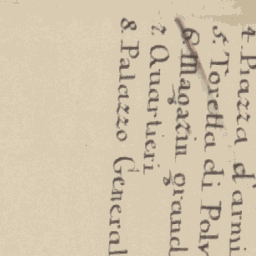 4. Piazza d'armi
5. Toretta di Polv
6. Magazin grand
7. Quartieri
8. Palazzo General